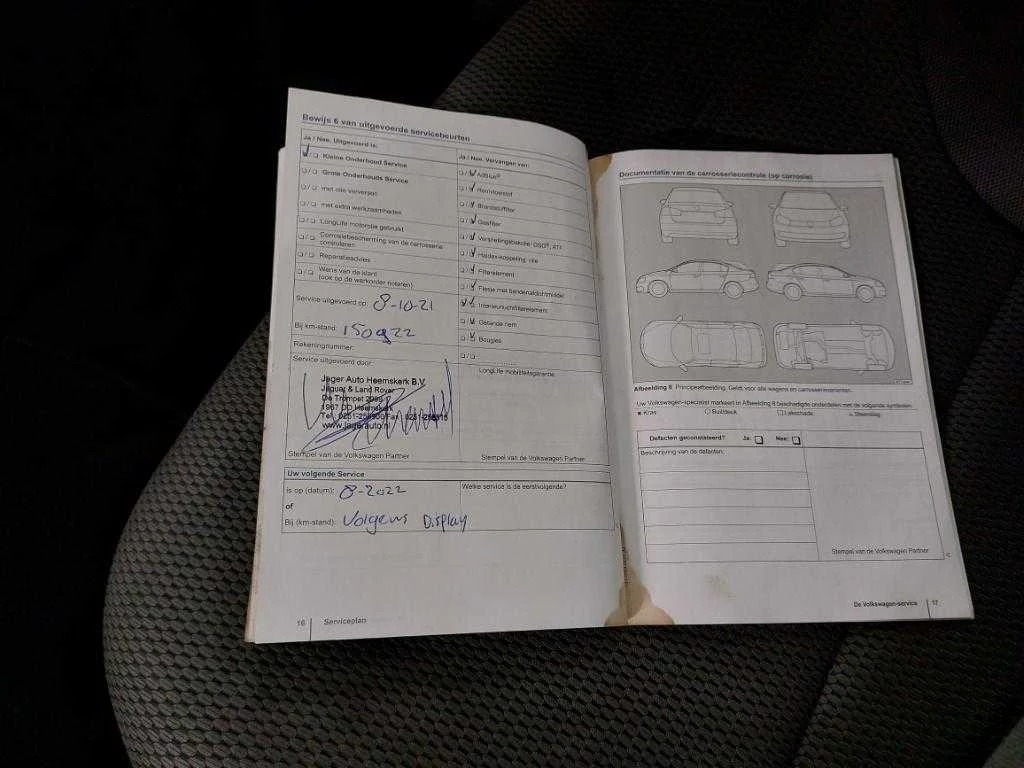 Bewijs 6 van uitgevoerde servicebeurten
Ja / Nee. Uitgevoerd is:
Kleine Onderhoud Service
Grote Onderhouds Service
met olie verversen
met extra werkzaamheden
LongLife motorolie gebruikt
Corrosiebescherming van de carrosserie
controleren
Reparatieadvies
Wens van de klant
(ook op de werkorder noteren)
Service uitgevoerd op: 8-10-21
Bij km-stand:
Rekeningnummer:
Service uitgevoerd door:
Jager Auto Heemskerk B.V.
Jaguar & Land Rover
De Trompet
1967 DD Heemskerk
www.jagerauto.nl
Stempel van de Volkswagen Partner
Ja / Nee. Vervangen van:
AdBlue®
Remvloeistof
Brandstoffilter
Gasfilter
Versnellingsbakolie: DSG®, ATF
Haldex-koppeling: olie
Filterelement
Flesje met bandenafdichtmiddel
Interieurluchtfilterelement
Getande riem
Bougies
LongLife mobiliteitsgarantie
Stempel van de Volkswagen Partner
Uw volgende Service
is op (datum): 8-2022
of
Bij (km-stand): Volgens Display
Welke service is de eerstvolgende?
16 Serviceplan
Documentatie van de carrosseriecontrole (op corrosie)
Afbeelding 8 Principeafbeelding. Geldt voor alle wagens en carrosserievarianten.
Uw Volkswagen-specialist markeert in Afbeelding 8 beschadigde onderdelen met de volgende symbolen:
Kras Buil/deuk Lakschade Steenslag
Defecten geconstateerd? Ja: Nee:
Beschrijving van de defecten:
Stempel van de Volkswagen Partner
De Volkswagen-service 17